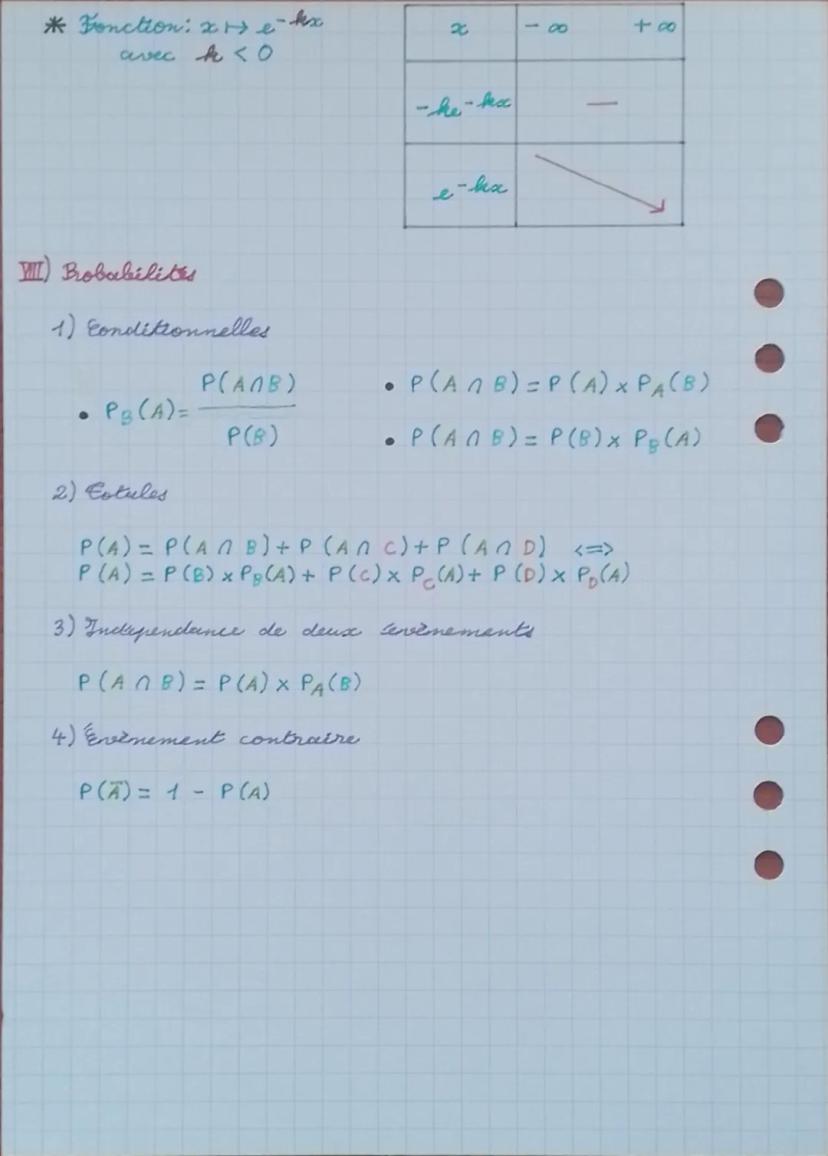 * Fonction: x ↦ e^-kx
avec k < 0
x | -∞ +∞
-ke^-kx | —
e^-kx
VIII) Probabilités
1) Conditionnelles
• P_B(A) = P(A∩B) / P(B)
• P(A ∩ B) = P(A) × P_A(B)
• P(A ∩ B) = P(B) × P_B(A)
2) Totales
P(A) = P(A ∩ B) + P(A ∩ C) + P(A ∩ D) <=>
P(A) = P(B) × P_B(A) + P(C) × P_C(A) + P(D) × P_D(A)
3) Indépendance de deux évènements
P(A ∩ B) = P(A) × P_A(B)
4) Évènement contraire
P(Ā) = 1 - P(A)